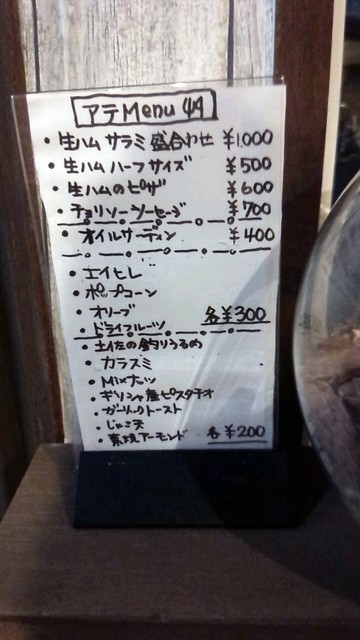 アテMenu
・生ハム サラミ 盛合わせ ¥1,000
・生ハム ハーフサイズ ¥500
・生ハムのピザ ¥600
・チョリソーソーセージ ¥700
・オイルサーディン ¥400
・エイヒレ
・ポップコーン
・オリーブ 各¥300
・ドライフルーツ
・土佐の釣りうるめ
・カラスミ
・Mixナッツ
・ギリシャ産ピスタチオ
・ガーリックトースト
・じゃこ天
・素焼アーモンド 各¥200